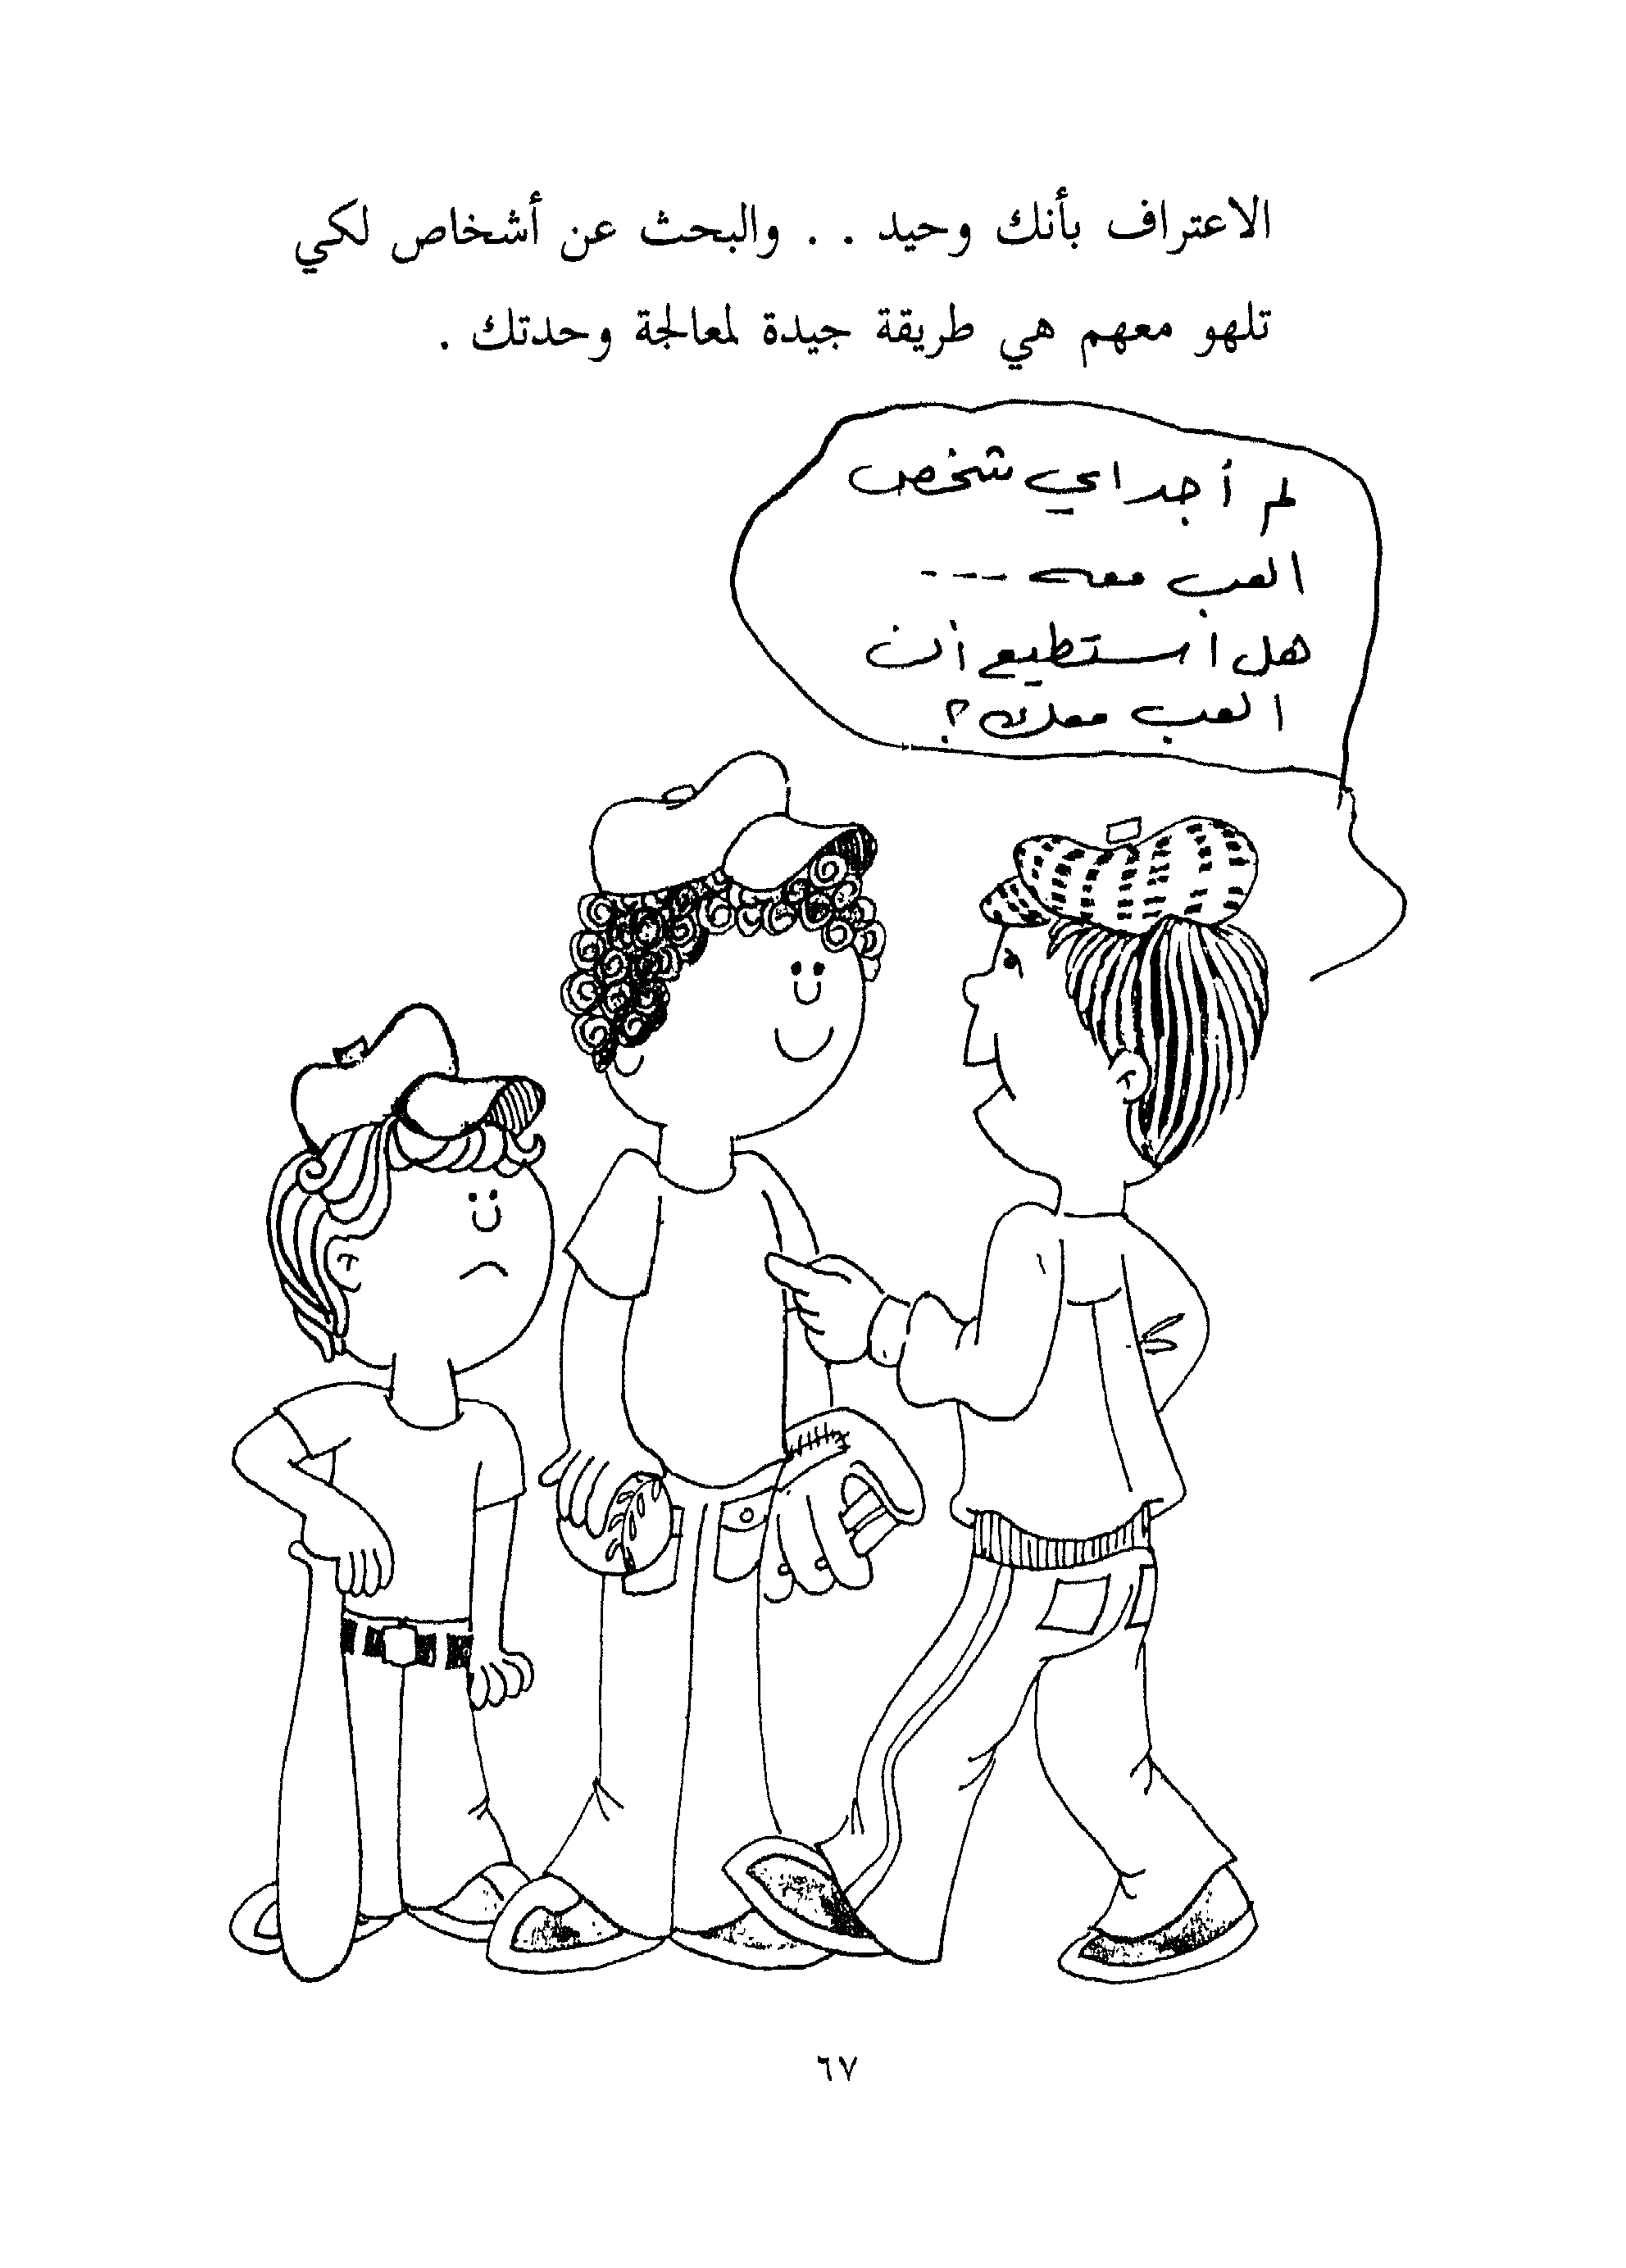 الاعتراف بأنك وحيد . . والبحث عن أشخاص لكي
تلهو معهم هي طريقة جيدة لمعالجة وحدتك .
لم أجد اي شخص
العب معه ---
هل استطيع أن
العب معك؟
٦٧